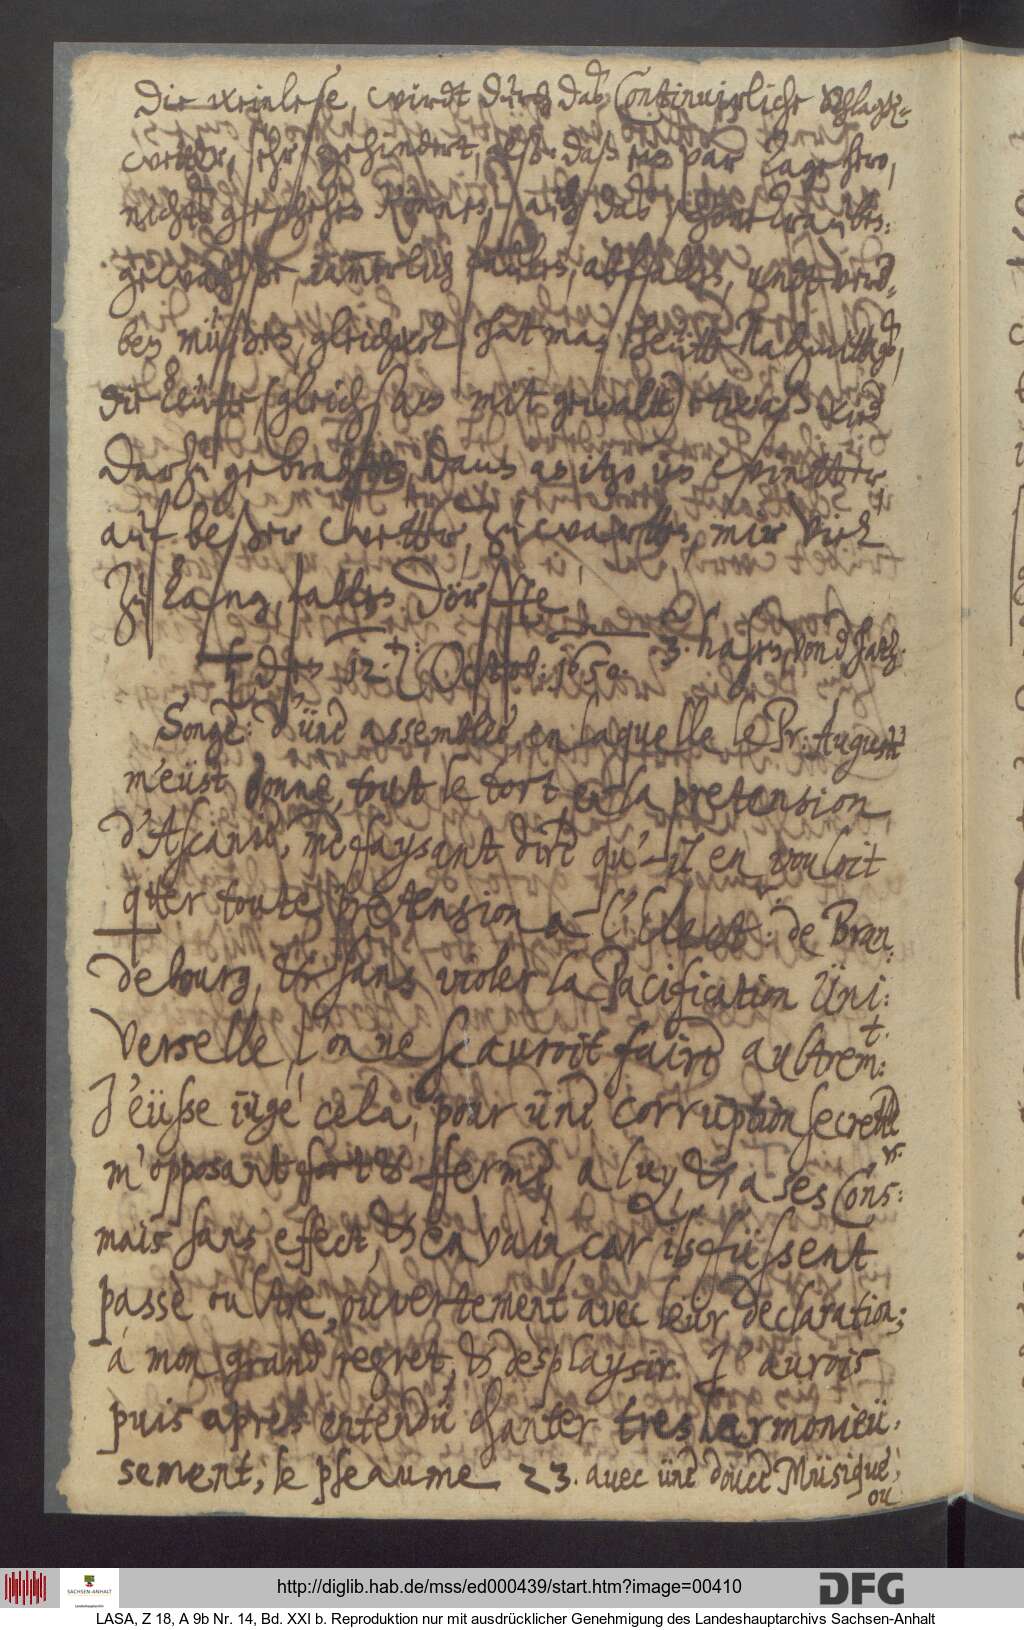 Die weinlese, wirdt durch das Continuirliche Schlagk-
wetter, sehr gehindert, also daß ein par Tage hero,
nichts geschehen können, auch das schöne Trauben:
gewächße, iämerlich faulen, abfallen, undt verd-
ben müßen, gleichwol hat man heütte Nachmittags,
die leütte (gleichsam mit gewalt) etwaß
Darzu gebracht, dann es itzo im wintter
auf beßer wetter, zu wartten, mir viel
zu lang, fallen dörffte
3 hasen von d Jatz.
den 12. Octob: 1650.
Songè: d'ünè assemblèe, en laquelle le Pr: August9
m'eüst donnè, tout le tort, en la pretension
d'Ascanie, me faysant dire qu'-il en vouloit
qtter toute pretension a l'Elect: de Bran
debourg, & sans violer la Pacification Üni:
Verselle, l'on ne scauroit faire aultrem:t
J'eüsse iügè cela, pour ünè corruption secrette
m'opposant fort & fferme, a luy, & a ses Cons:rs
mais sans effect, & en vain, car ils füssent
passè oultre, ouvertement avec leür declaration;
á mon grand regret, & desplaysir. J'aurois
puis apres entendü chanter tres harmonieü:
sement, le pseaume 23. avec ünè doucè Müsiquè,
ou
http://diglib.hab.de/mss/ed000439/start.htm?image=00410
SACHSEN-ANHALT
DFG
LASA, Z 18, A 9b Nr. 14, Bd. XXI b. Reproduktion nur mit ausdrücklicher Genehmigung des Landeshauptarchivs Sachsen-Anhalt